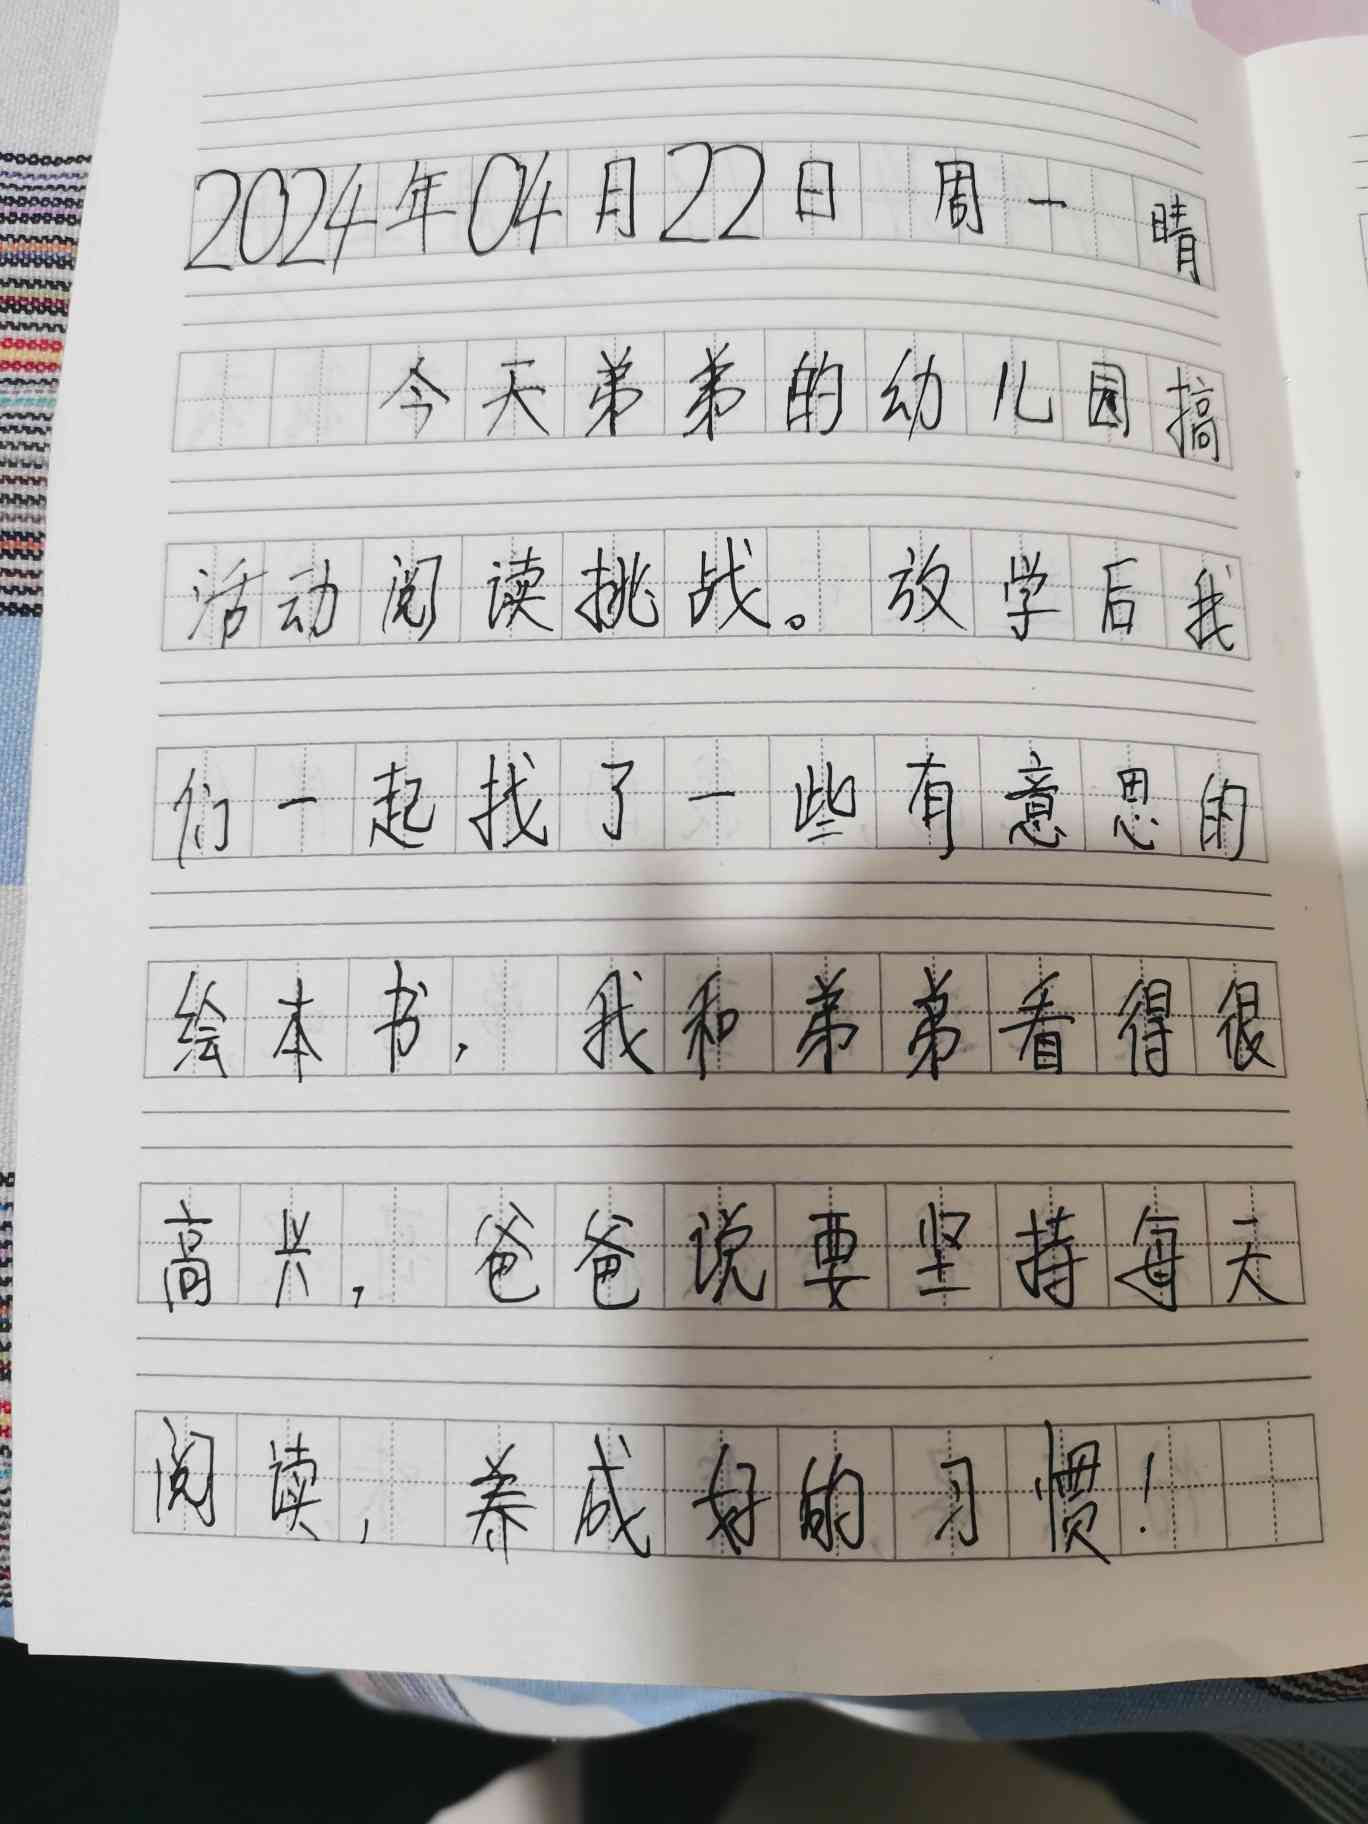 2024年04月22日 周一 晴
今天弟弟的幼儿园搞
活动阅读挑战。放学后我
们一起找了一些有意思的
绘本书，我和弟弟看得很
高兴，爸爸说要坚持每天
阅读，养成好的习惯！